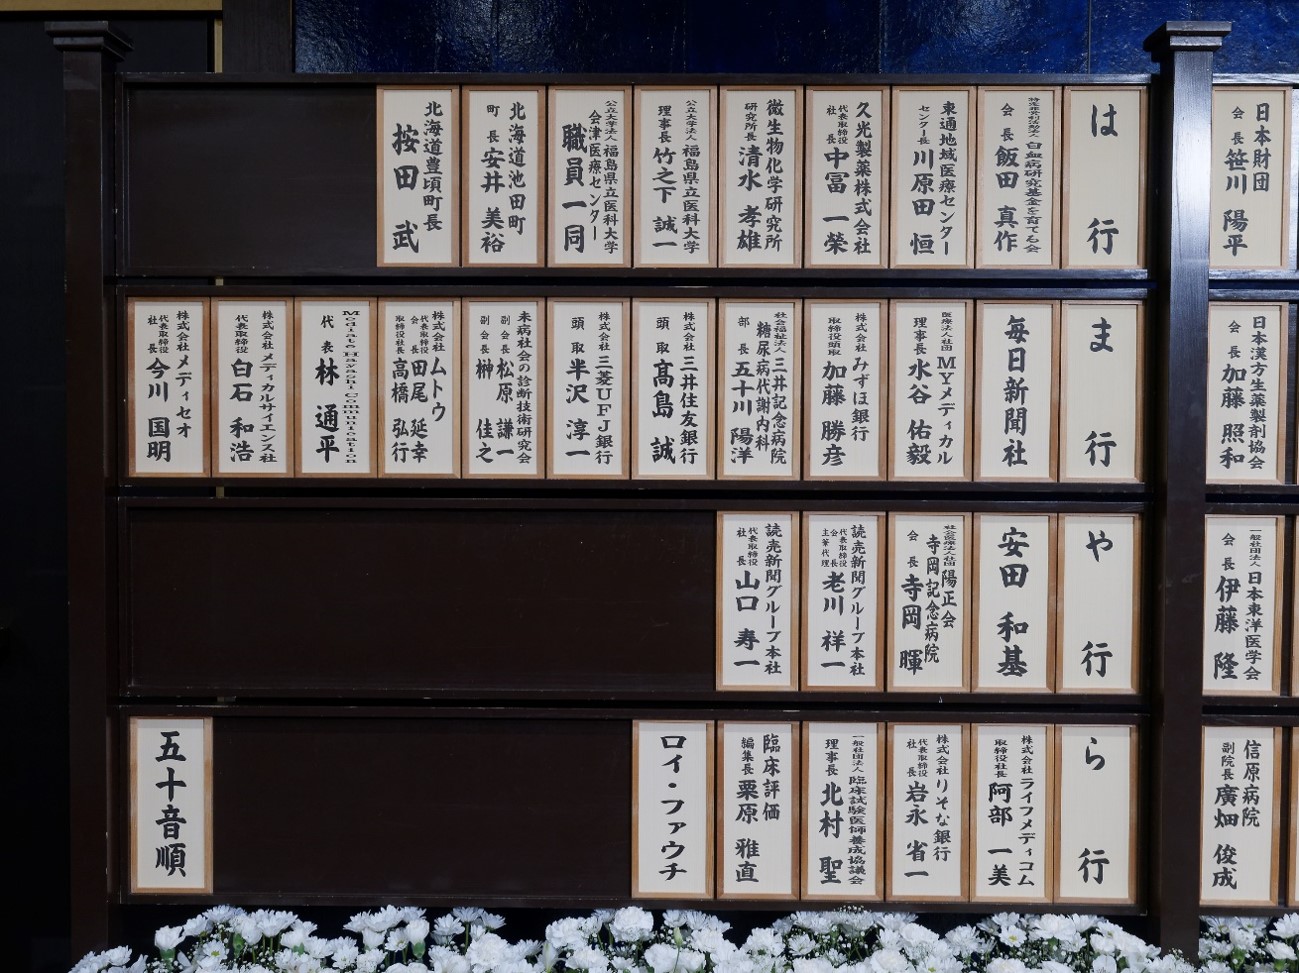 日本財団
会長 笹川 陽平
は行
会長 飯田 真作
東通地域医療センター
センター長 川原田 恒
久光製薬株式会社
代表取締役社長 中冨 一榮
微生物化学研究所
研究所長 清水 孝雄
公立大学法人 福島県立医科大学
理事長 竹之下 誠一
公立大学法人 福島県立医科大学
会津医療センター
職員一同
北海道池田町
町長 安井 美裕
北海道豊頃町長
按田 武
日本漢方生薬製剤協会
会長 加藤 照和
ま行
毎日新聞社
医療法人社団 MYメディカル
理事長 水谷 佑毅
株式会社 みずほ銀行
取締役頭取 加藤 勝彦
社会福祉法人 三井記念病院
糖尿病代謝内科
部長 五十川 陽洋
株式会社 三井住友銀行
頭取 髙島 誠
株式会社 三菱UFJ銀行
頭取 半沢 淳一
未病社会の診断技術研究会
副会長 松原 謙一
副会長 榊 佳之
株式会社 ムトウ
代表取締役会長 田尾 延幸
取締役社長 高橋 弘行
Mediate Hayashi Communication
代表 林 通平
株式会社 メディカルサイエンス社
代表取締役 白石 和浩
株式会社 メディセオ
代表取締役社長 今川 国明
一般社団法人 日本東洋医学会
会長 伊藤 隆
や行
安田 和基
社会医療法人社団 陽正会
寺岡記念病院
会長 寺岡 暉
読売新聞グループ本社
代表取締役会長 主筆代理 老川 祥一
読売新聞グループ本社
代表取締役社長 山口 寿一
信原病院
副院長 廣畑 俊成
ら行
株式会社 ライフメディコム
取締役社長 阿部 一美
株式会社 りそな銀行
代表取締役社長 岩永 省一
一般社団法人 臨床試験医師養成協議会
理事長 北村 聖
臨床評価
編集長 栗原 雅直
ロイ・ファウチ
五十音順